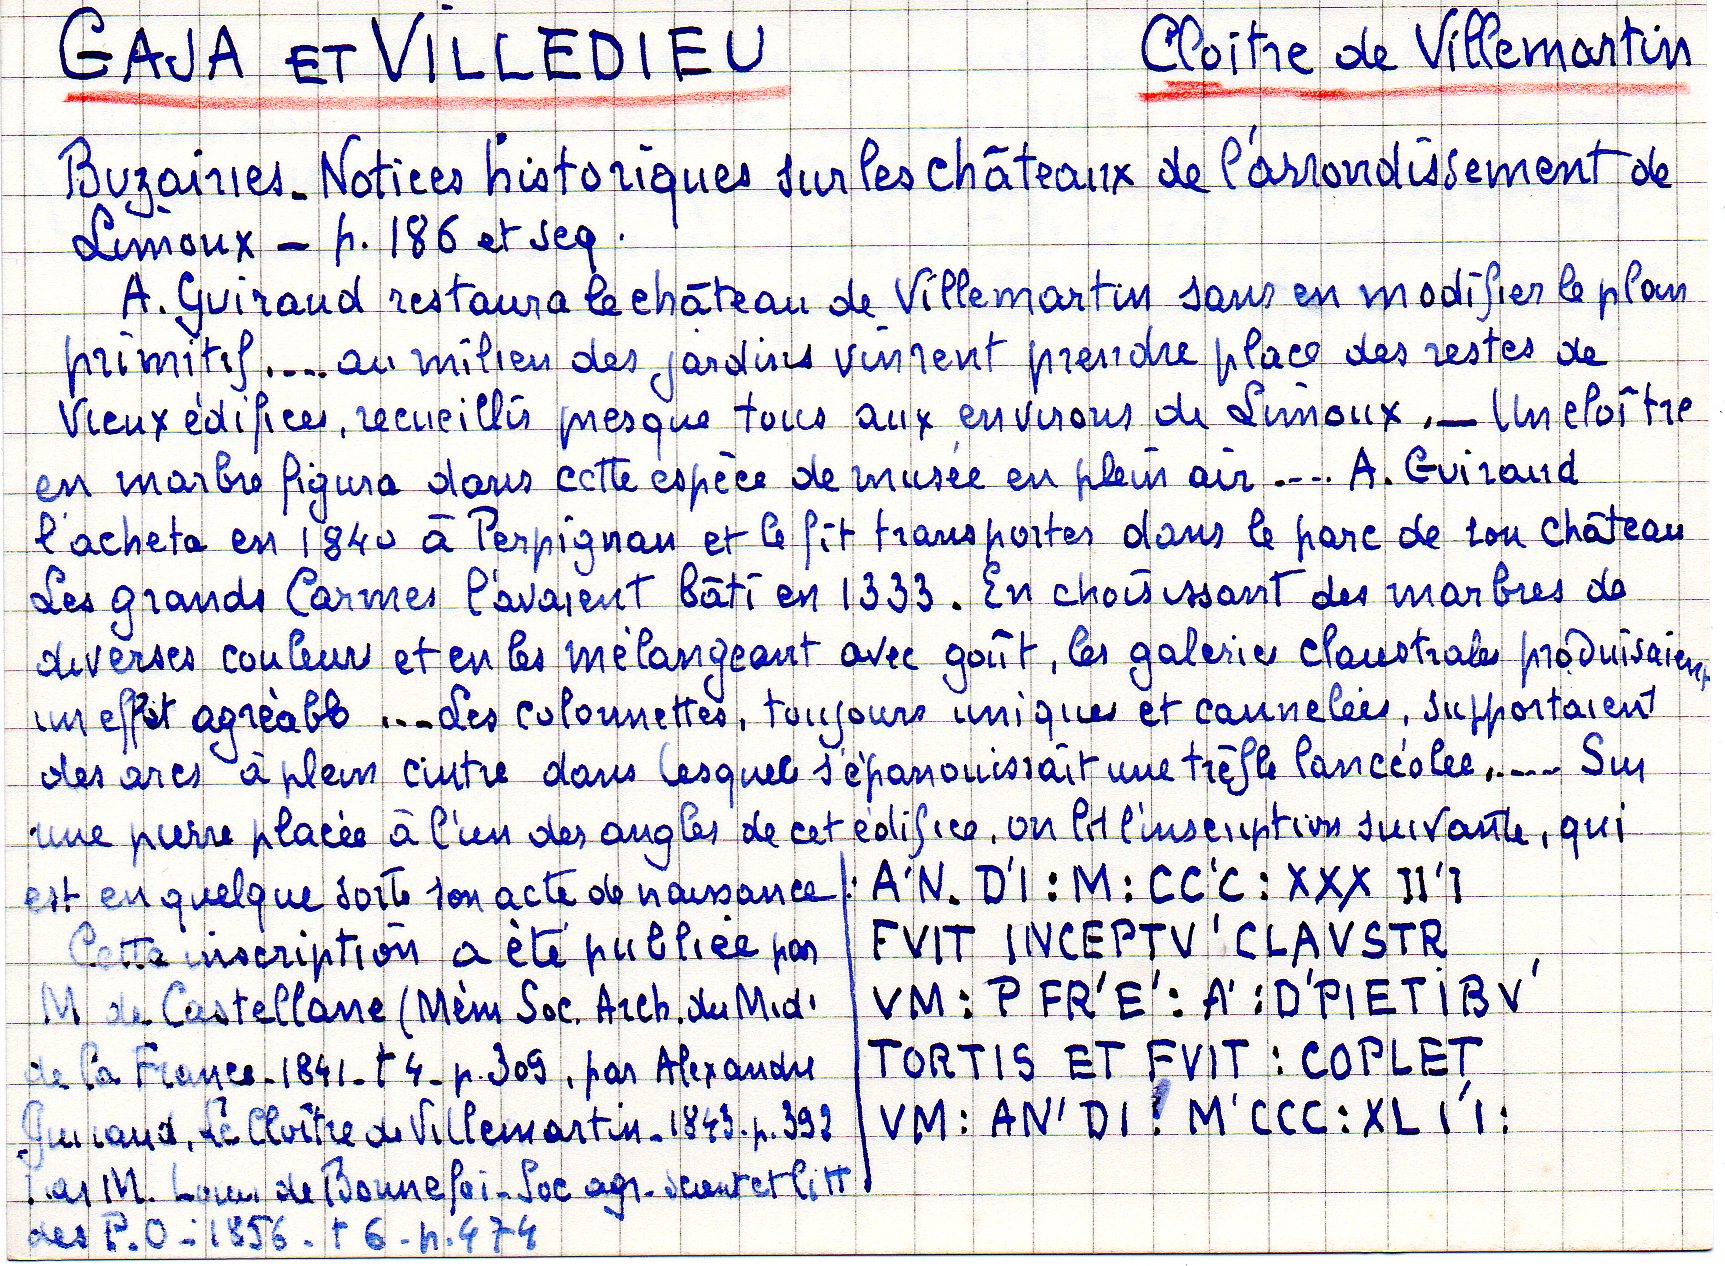 GAJA ET VILLEDIEU
Cloître de Villemartin
Buzairies - Notices historiques sur les châteaux de l'arrondissement de
Limoux - p. 186 et seq.
A. Guiraud restaura le château de Villemartin sans en modifier le plan
primitif .... au milieu des jardins vinrent prendre place des restes de
vieux édifices, recueillis presque tous aux environs de Limoux . - Un cloître
en marbre figura dans cette espèce de musée en plein air .... A. Guiraud
l'acheta en 1840 à Perpignan et le fit transporter dans le parc de son château
Les grands Carmes l'avaient bâti en 1333. En choisissant des marbres de
diverses couleurs et en les mélangeant avec goût, les galeries claustrales produisaient
un effet agréable .... Les colonnettes, toujours uniques et cannelées, supportaient
des arcs à plein cintre dans lesquels s'épanouissait une trèfle lancéolée ..... Sur
une pierre placée à l'un des angles de cet édifice, on lit l'inscription suivante, qui
est en quelque sorte son acte de naissance :
A'N. D'I : M : CC'C : XXX II'I
FVIT INCEPTV ' CLAVSTR
VM : P FR'E' : A' : D'PIETIBV'
TORTIS ET FVIT : COPLET
VM : AN' DI : M'CCC : XL I'I :
Cette inscription a été publiée par
M. de Castellane (Mém Soc. Arch. du Midi
de la France - 1841 - t 4 - p. 309, par Alexandre
Guiraud, Le Cloître de Villemartin - 1843. p. 392
Par M. Louis de Bonnefoi - Soc agr. scient et litt
des P.O - 1856 - t 6 - p. 474